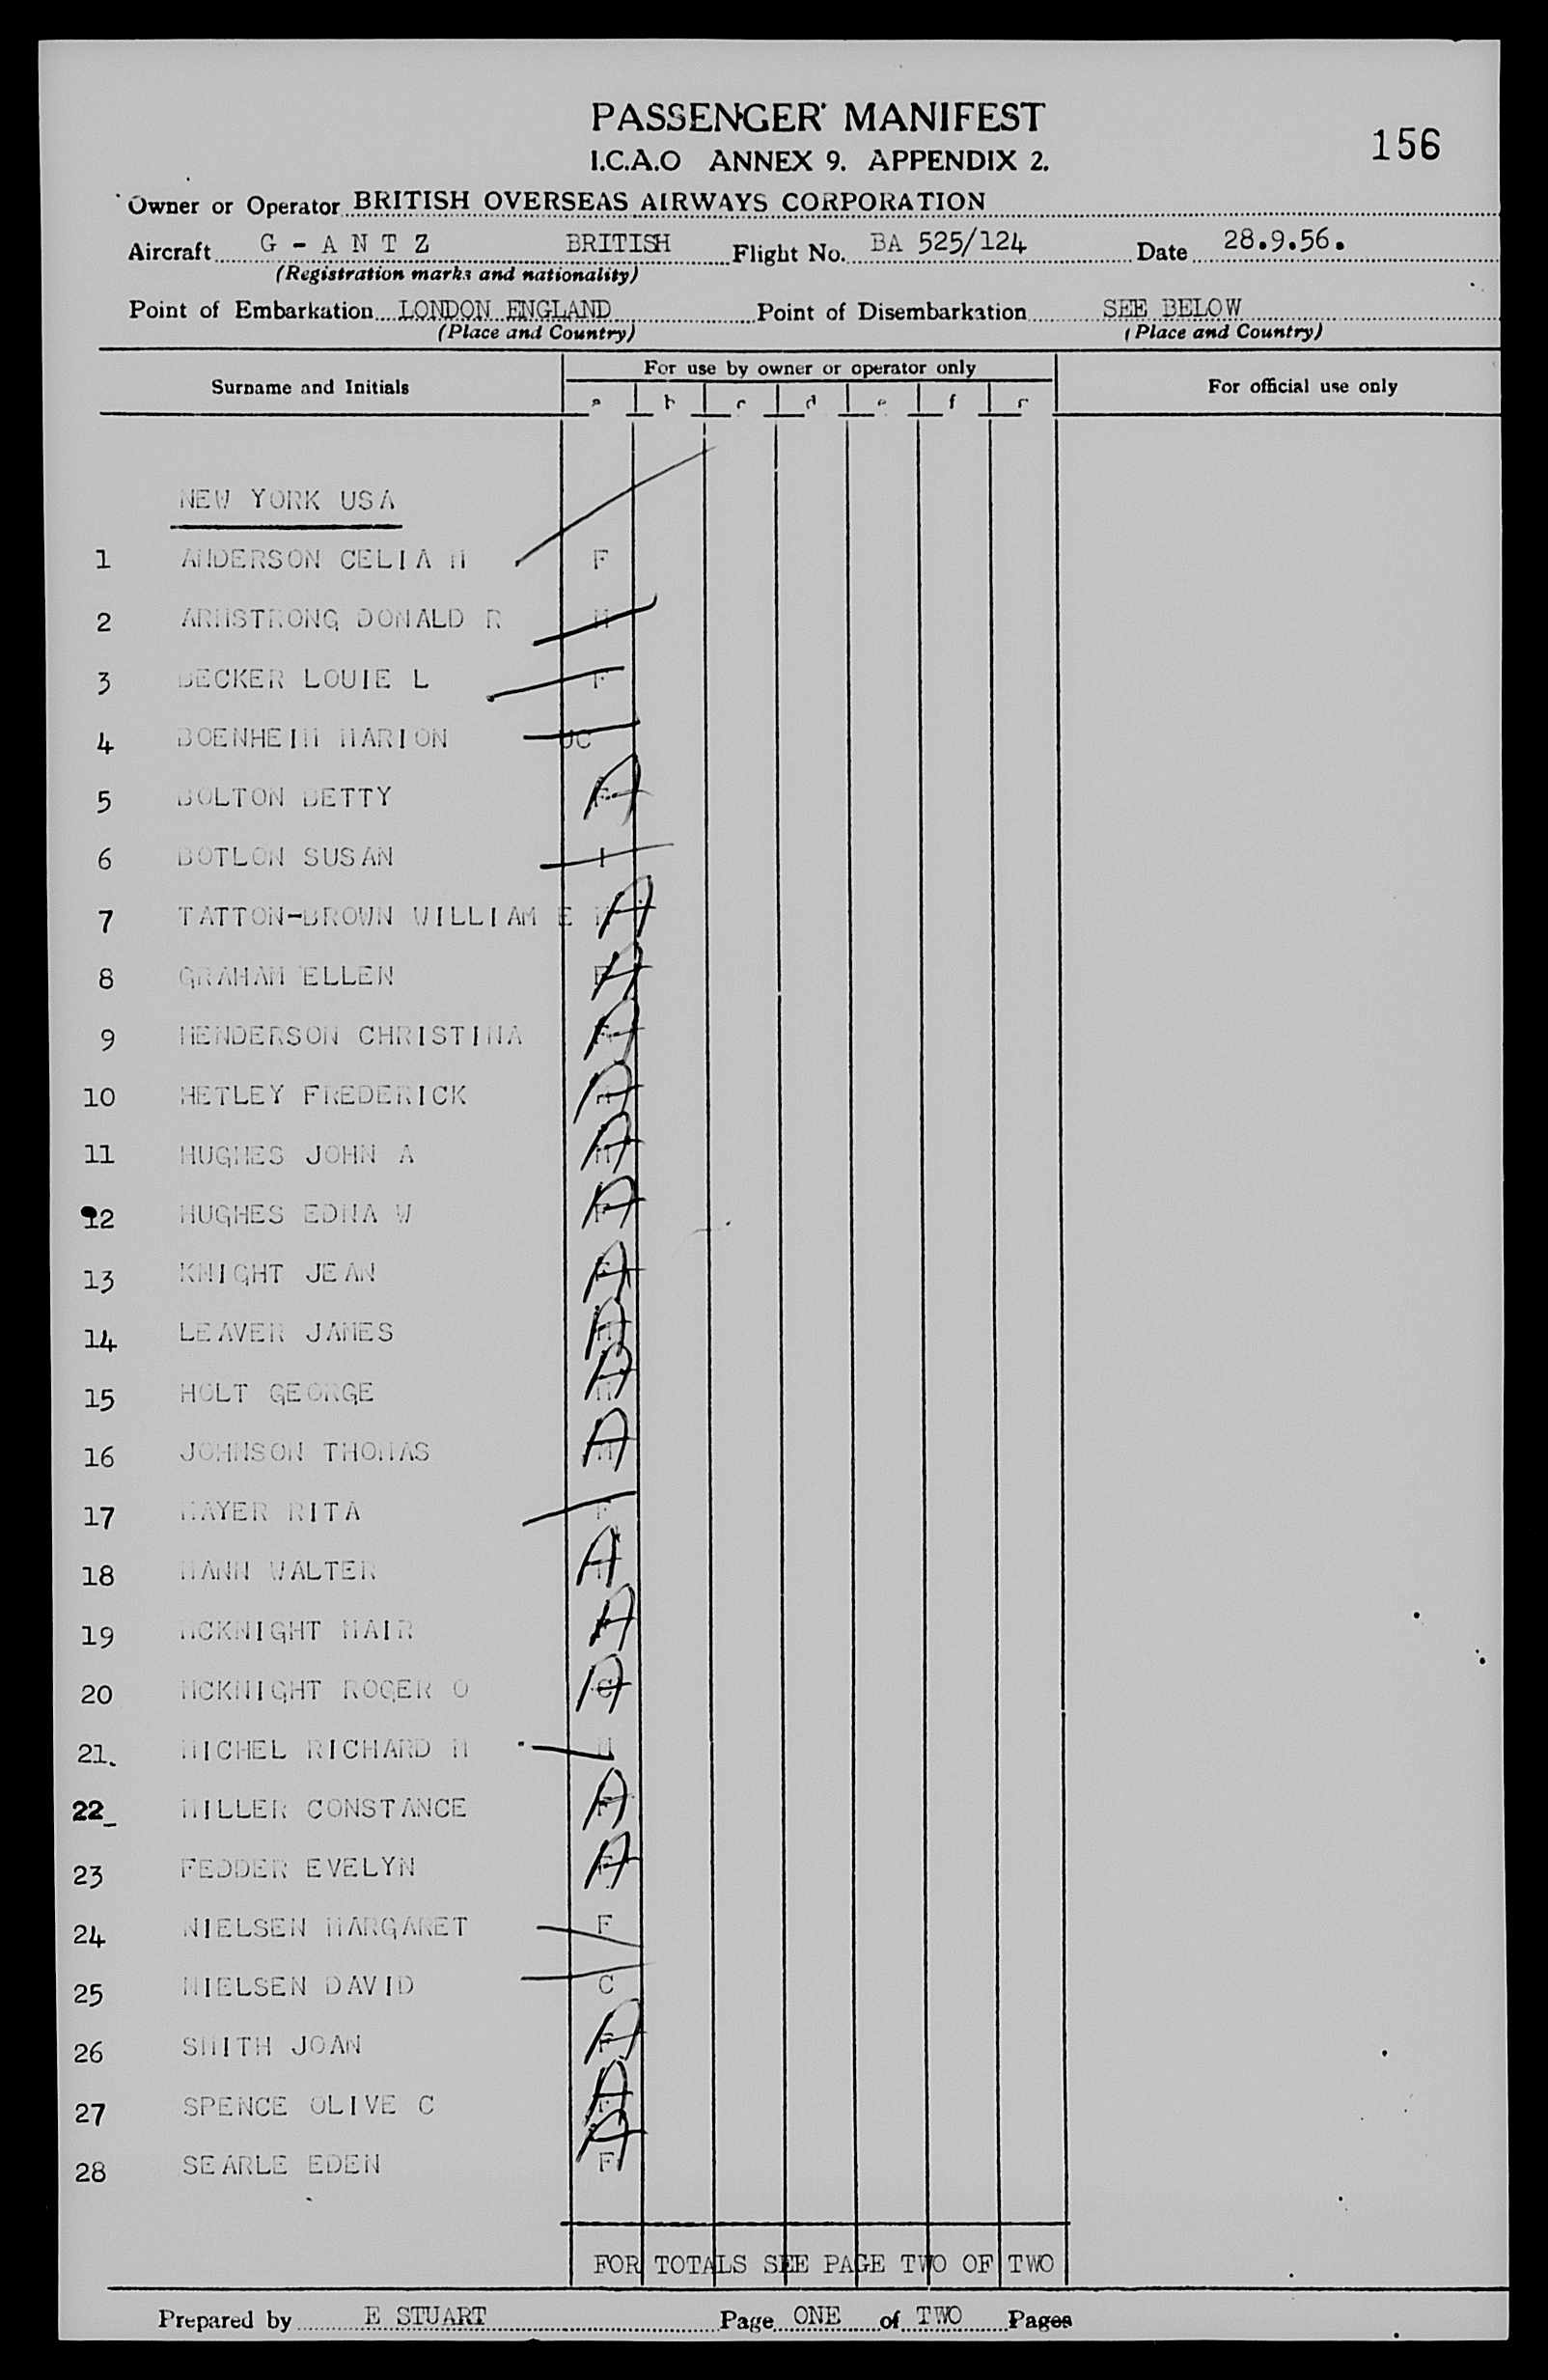 PASSENGER MANIFEST
I.C.A.O ANNEX 9. APPENDIX 2.
156
Owner or Operator BRITISH OVERSEAS AIRWAYS CORPORATION
Aircraft G - A N T Z BRITISH Flight No. BA 525/124 Date 28.9.56.
(Registration marks and nationality)
Point of Embarkation LONDON ENGLAND Point of Disembarkation SEE BELOW
(Place and Country) (Place and Country)
Surname and Initials For use by owner or operator only For official use only
a b c d e f
NEW YORK USA
1 ANDERSON CELIA M F
2 ARMSTRONG DONALD R M
3 BECKER LOUIE L F
4 BOENHEIM MARION UC
5 BOLTON BETTY F A
6 BOTLON SUSAN I
7 TATTON-BROWN WILLIAM E M A
8 GRAHAM ELLEN F A
9 HENDERSON CHRISTINA F A
10 HETLEY FREDERICK M A
11 HUGHES JOHN A M A
12 HUGHES EDNA W F A
13 KNIGHT JEAN F A
14 LEAVER JAMES M A
15 HOLT GEORGE M A
16 JOHNSON THOMAS M A
17 MAYER RITA F
18 MANN WALTER M A
19 MCKNIGHT MAIR F A
20 MCKNIGHT ROGER O C A
21. MICHEL RICHARD M M
22_ MILLER CONSTANCE F A
23 FEDDER EVELYN F A
24 NIELSEN MARGARET F
25 NIELSEN DAVID C
26 SMITH JOAN F A
27 SPENCE OLIVE C F A
28 SEARLE EDEN F A
FOR TOTALS SEE PAGE TWO OF TWO
Prepared by E STUART Page ONE of TWO Pages